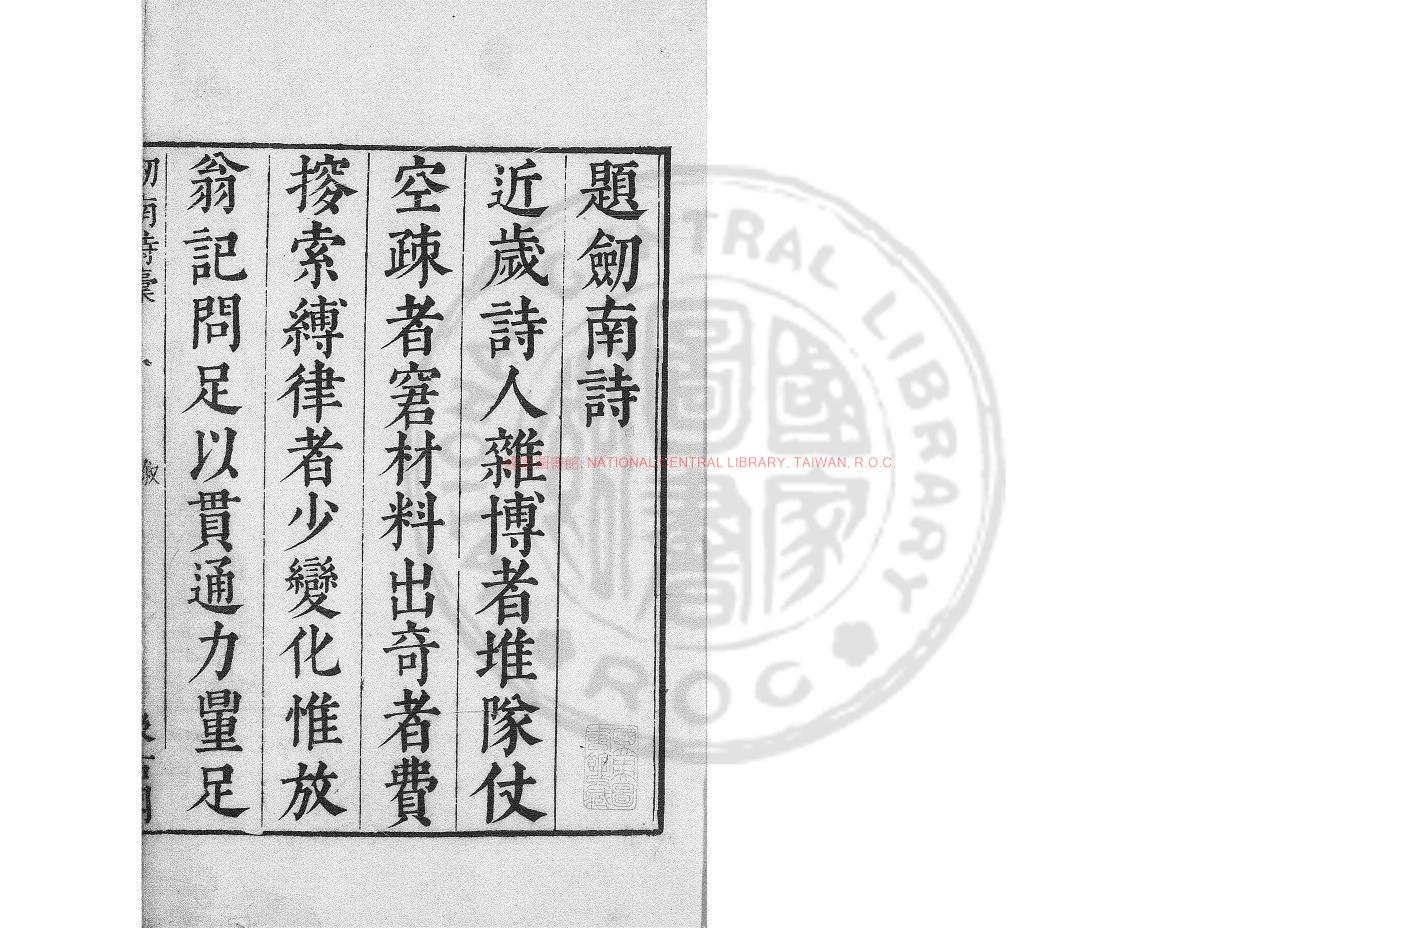 題劒南詩
近歲詩人雜博者堆隊仗
空疎者窘材料出奇者費
搜索縛律者少變化惟放
翁記問足以貫通力量足
NATIONAL CENTRAL LIBRARY, TAIWAN, R.O.C.
CENTRAL LIBRARY
ROC
國家圖書